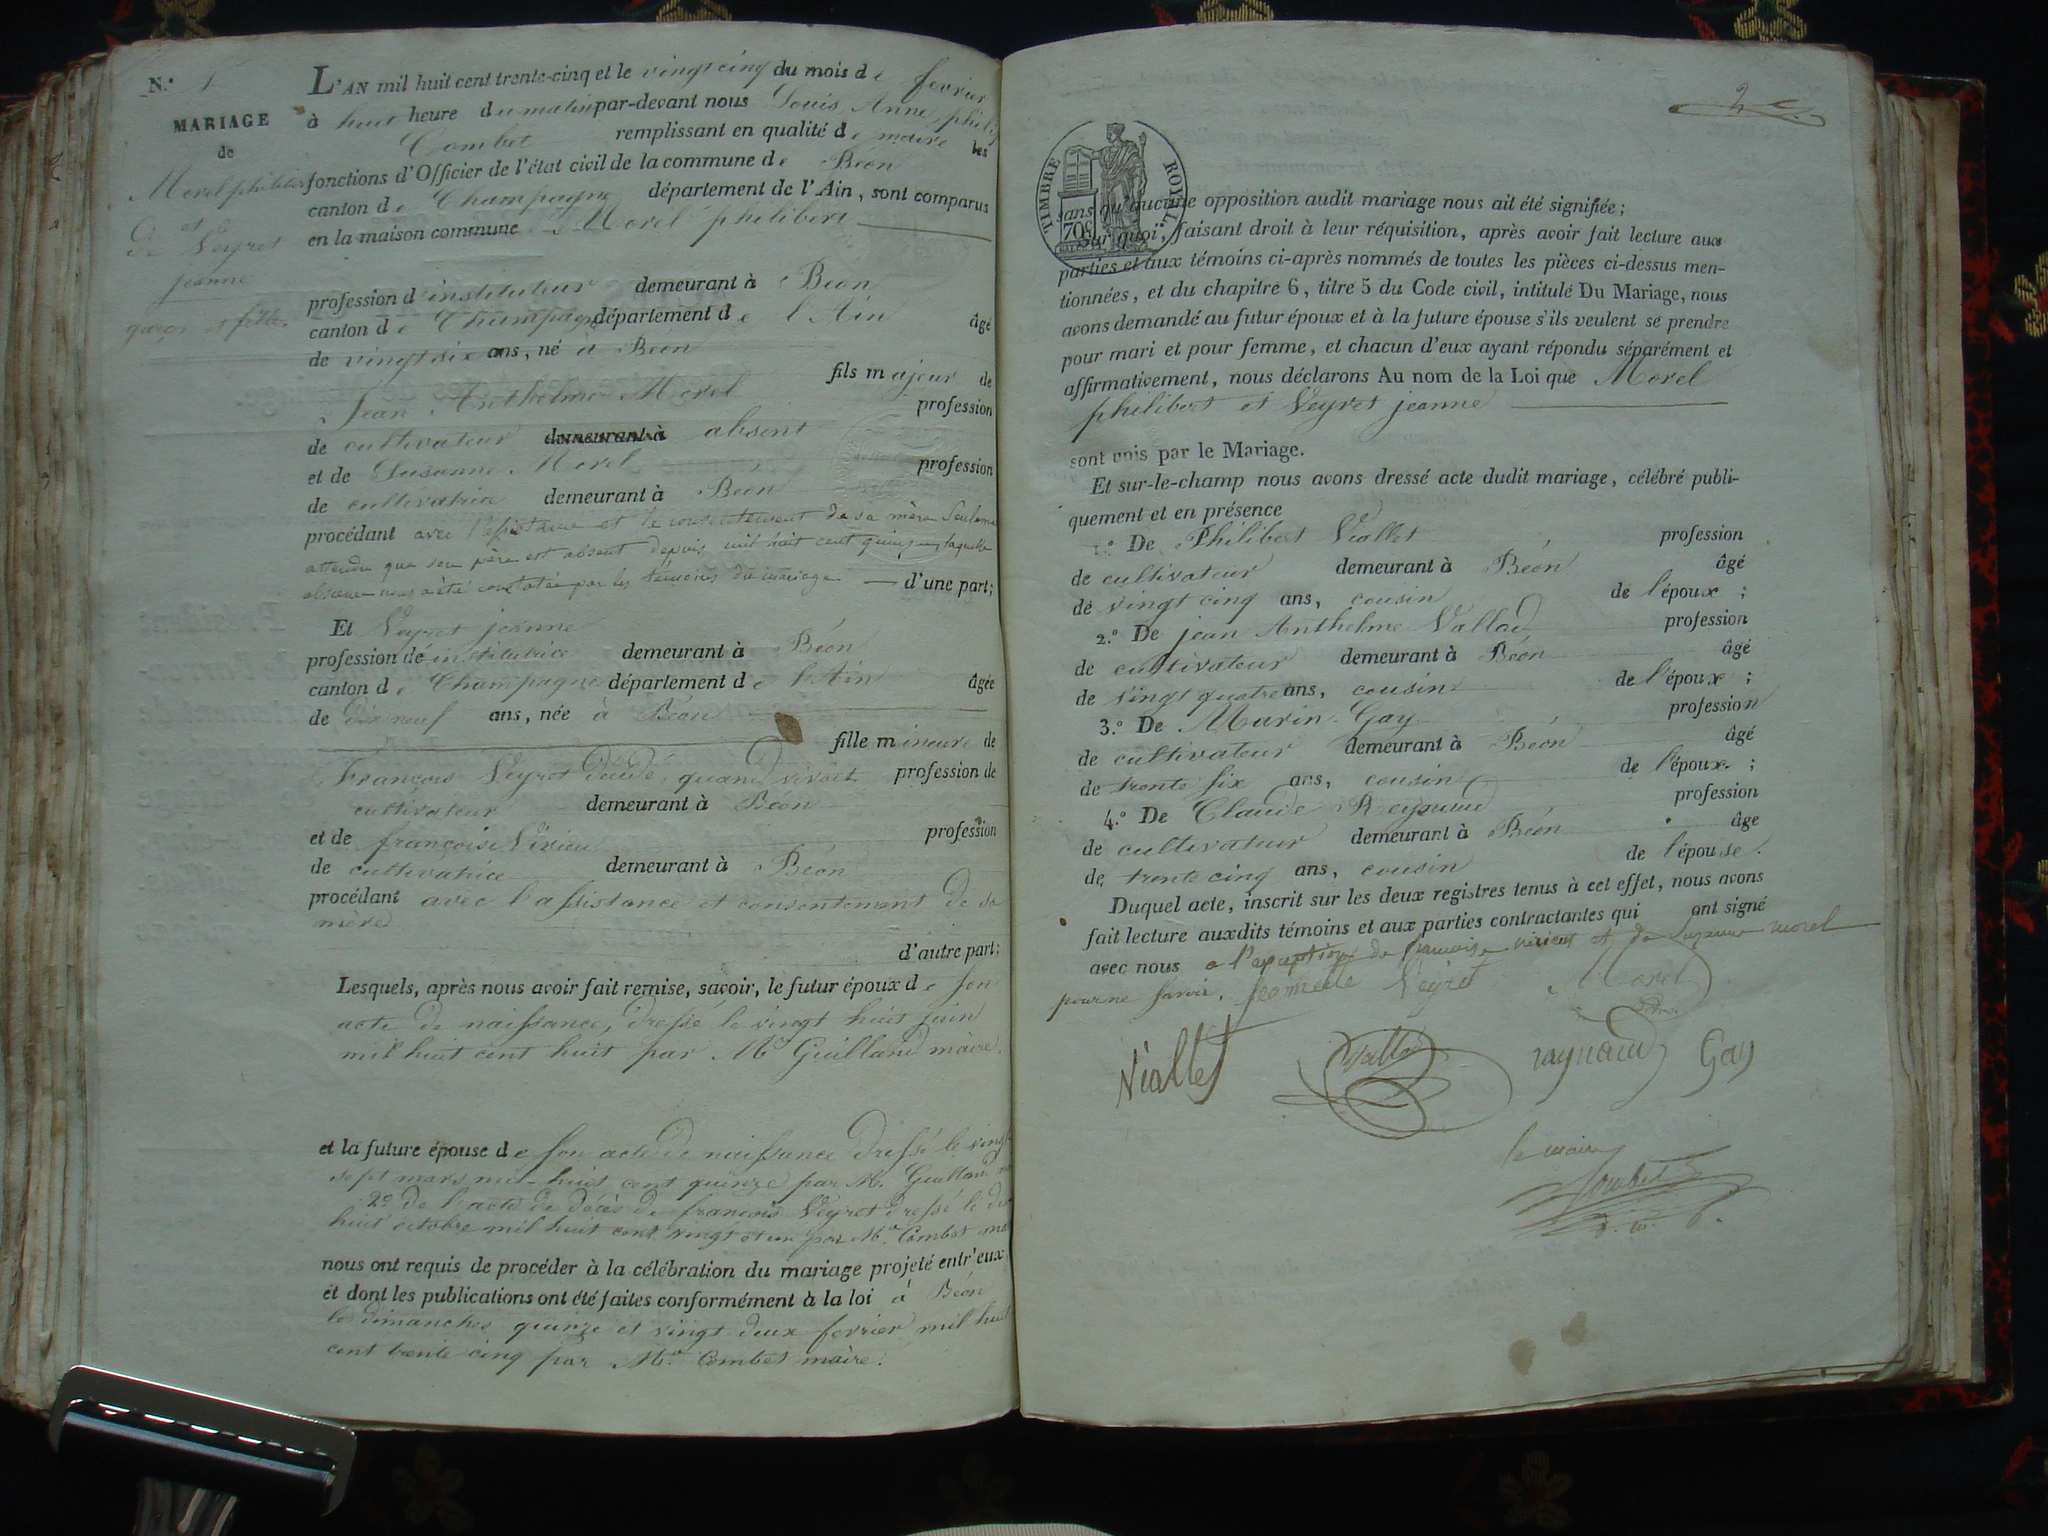 N.° 1
MARIAGE
de
Morel philibert
et
De Veyret
jeanne
garçon et fille
L'AN mil huit cent trente-cinq et le vingt cinq du mois de fevrier
à huit heure du matin par-devant nous Louis Anne philip
Combet remplissant en qualité de maire les
fonctions d'Officier de l'état civil de la commune de Béon
canton de Champagne département de l'Ain, sont comparus
en la maison commune Morel philibert
profession d'instituteur demeurant à Béon
canton de Champagne département de l'Ain âgé
de vingt six ans, né à Béon
fils majeur de
Jean Anthelme Morel profession
de cultivateur demeurant à absent
et de Susanne Morel profession
de cultivatrice demeurant à Béon
procédant avec l'assistance et le consentement de sa mère seulement
attendu que son père est absent depuis mil huit cent quinze, laquelle
absence nous a été constatée par les témoins du mariage d'une part;
Et Veyret jeanne
profession de institutrice demeurant à Béon
canton de Champagne département de l'Ain âgée
de dix neuf ans, née à Béon
fille mineure de
François Veyret décédé, quand vivait profession de
cultivateur demeurant à Béon
et de françoise Vivieu profession
de cultivatrice demeurant à Béon
procédant avec l'assistance et consentement de sa
mère
d'autre part;
Lesquels, après nous avoir fait remise, savoir, le futur époux de son
acte de naissance, dressé le vingt huit juin
mil huit cent huit par Mr Guilland maire.
et la future épouse de son acte de naissance dressé le vingt
sept mars mil huit cent quinze par Mr. Guilland
2° de l'acte de décès de françois Veyret dressé le dix
huit octobre mil huit cent vingt et un par Mr. Combet
nous ont requis de procéder à la célébration du mariage projeté entr'eux
et dont les publications ont été faites conformément à la loi à Béon
les dimanches quinze et vingt deux fevrier mil huit
cent trente cinq par Mr. Combet maire.
2
TIMBRE ROYAL
70c
sans qu'aucune opposition audit mariage nous ait été signifiée;
Sur quoi, faisant droit à leur réquisition, après avoir fait lecture aux
parties et aux témoins ci-après nommés de toutes les pièces ci-dessus men-
tionnées, et du chapitre 6, titre 5 du Code civil, intitulé Du Mariage, nous
avons demandé au futur époux et à la future épouse s'ils veulent se prendre
pour mari et pour femme, et chacun d'eux ayant répondu séparément et
affirmativement, nous déclarons Au nom de la Loi que Morel
philibert et Veyret jeanne
sont unis par le Mariage.
Et sur-le-champ nous avons dressé acte dudit mariage, célébré publi-
quement et en présence
1.° De Philibert Viallet profession
de cultivateur demeurant à Béon âgé
de vingt cinq ans, cousin de l'époux;
2.° De jean Anthelme Vallod profession
de cultivateur demeurant à Béon âgé
de vingt quatre ans, cousin de l'époux;
3.° De Marin Gay profession
de cultivateur demeurant à Béon âgé
de trente six ans, cousin de l'époux;
4.° De Claude Reynaud profession
de cultivateur demeurant à Béon âge
de trente cinq ans, cousin de l'épouse.
Duquel acte, inscrit sur les deux registres tenus à cet effet, nous avons
fait lecture auxdits témoins et aux parties contractantes qui ont signé
avec nous a l'exception de francoise vivieu et de Suzanne morel
pour ne savoir. jeannette Veyret Morel
Viallet Vallod raynaud Gay
le maire
Combet